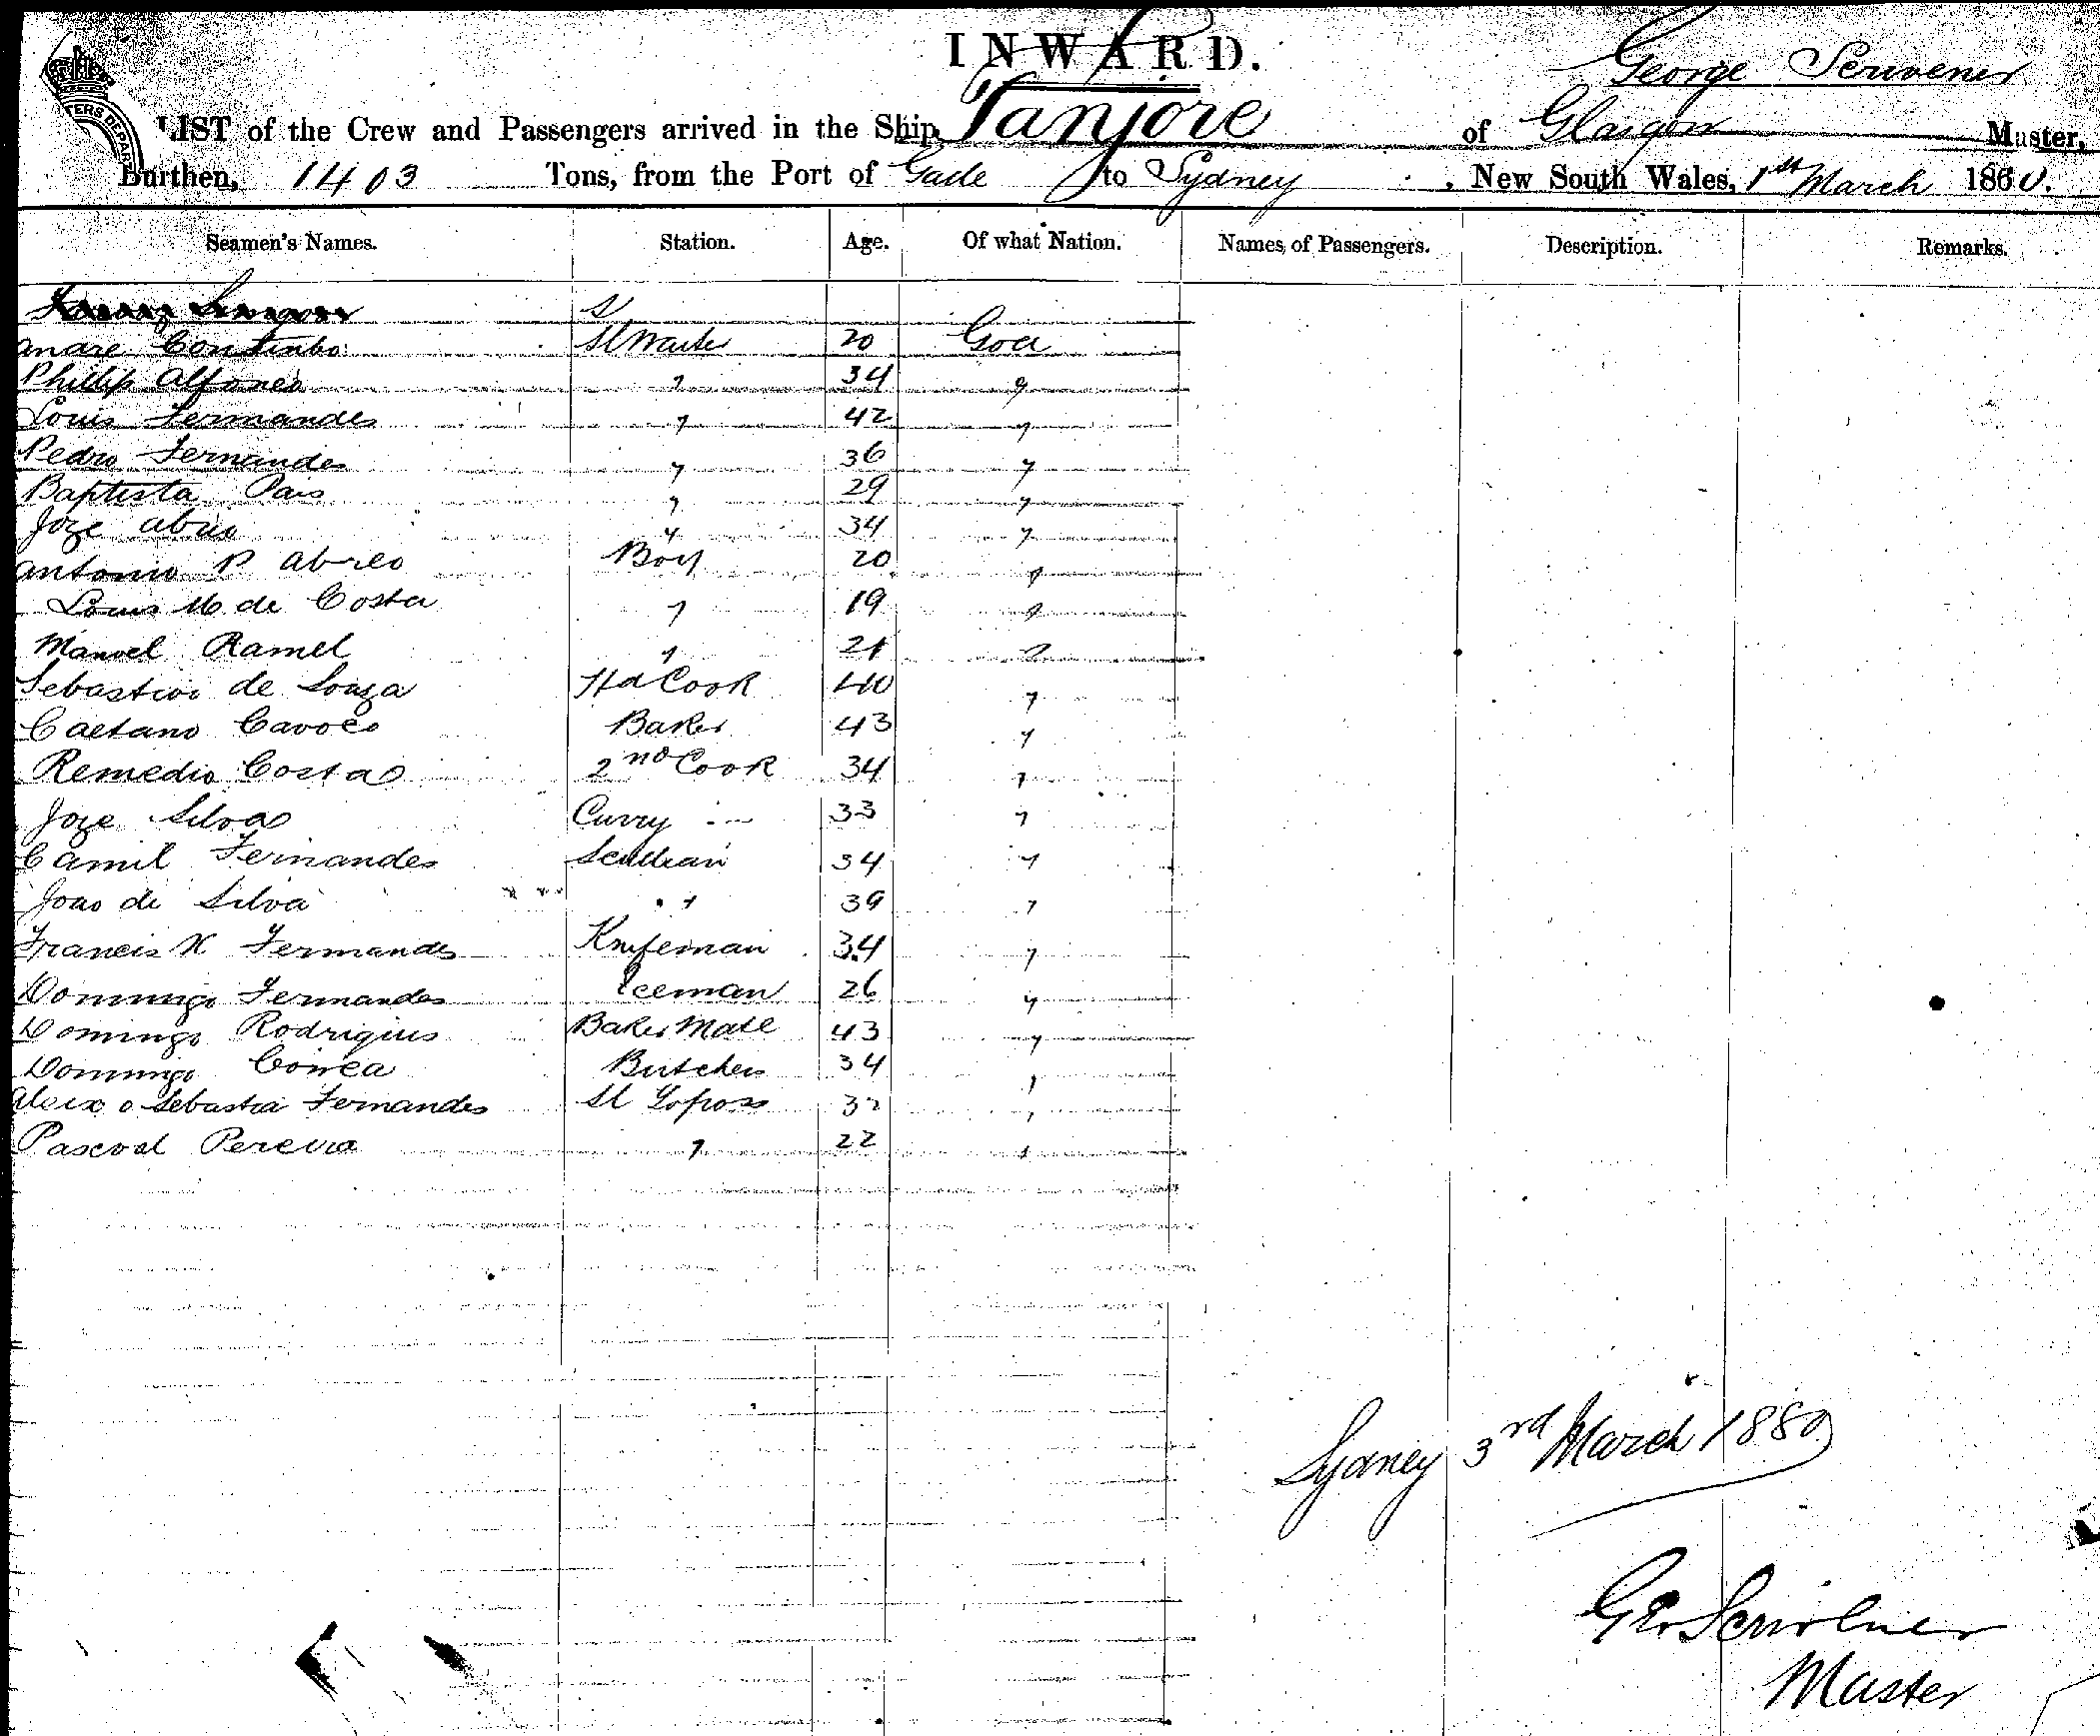 INWARD.
George Scrivener
LIST of the Crew and Passengers arrived in the Ship Tanjore of Glasgow Master,
Burthen, 1403 Tons, from the Port of Galle to Sydney, New South Wales, 1st March 1880.
Seamen's Names. Station. Age. Of what Nation. Names of Passengers. Description. Remarks.
Andre Continho 20 Goa
Phillip Alfonco " 34 "
Louis Fernandes " 42 "
Pedro Fernandes " 36 "
Baptista Pais " 29 "
Joze Abreo " 34 "
Antonio P Abreo Boy 20 "
Louis M de Costa " 19 "
Manoel Ramel " 21 "
Sebastian de Souza Hd Cook 40 "
Caetano Cavoco Baker 43 "
Remedio Costa 2nd Cook 34 "
Joze Silva Curry " 33 "
Camil Fernandes Scullian 34 "
Joao de Silva " 39 "
Francis X Fernandes Knifeman 34 "
Domingo Fernandes Iceman 26 "
Domingo Rodrigius Baker Mate 43 "
Domingo Correa Butcher 34 "
Aleixo Sebastia Fernandes "
Pascoal Pereira " 22 "
Sydney 3rd March 1880
Geo Scrivener
Master